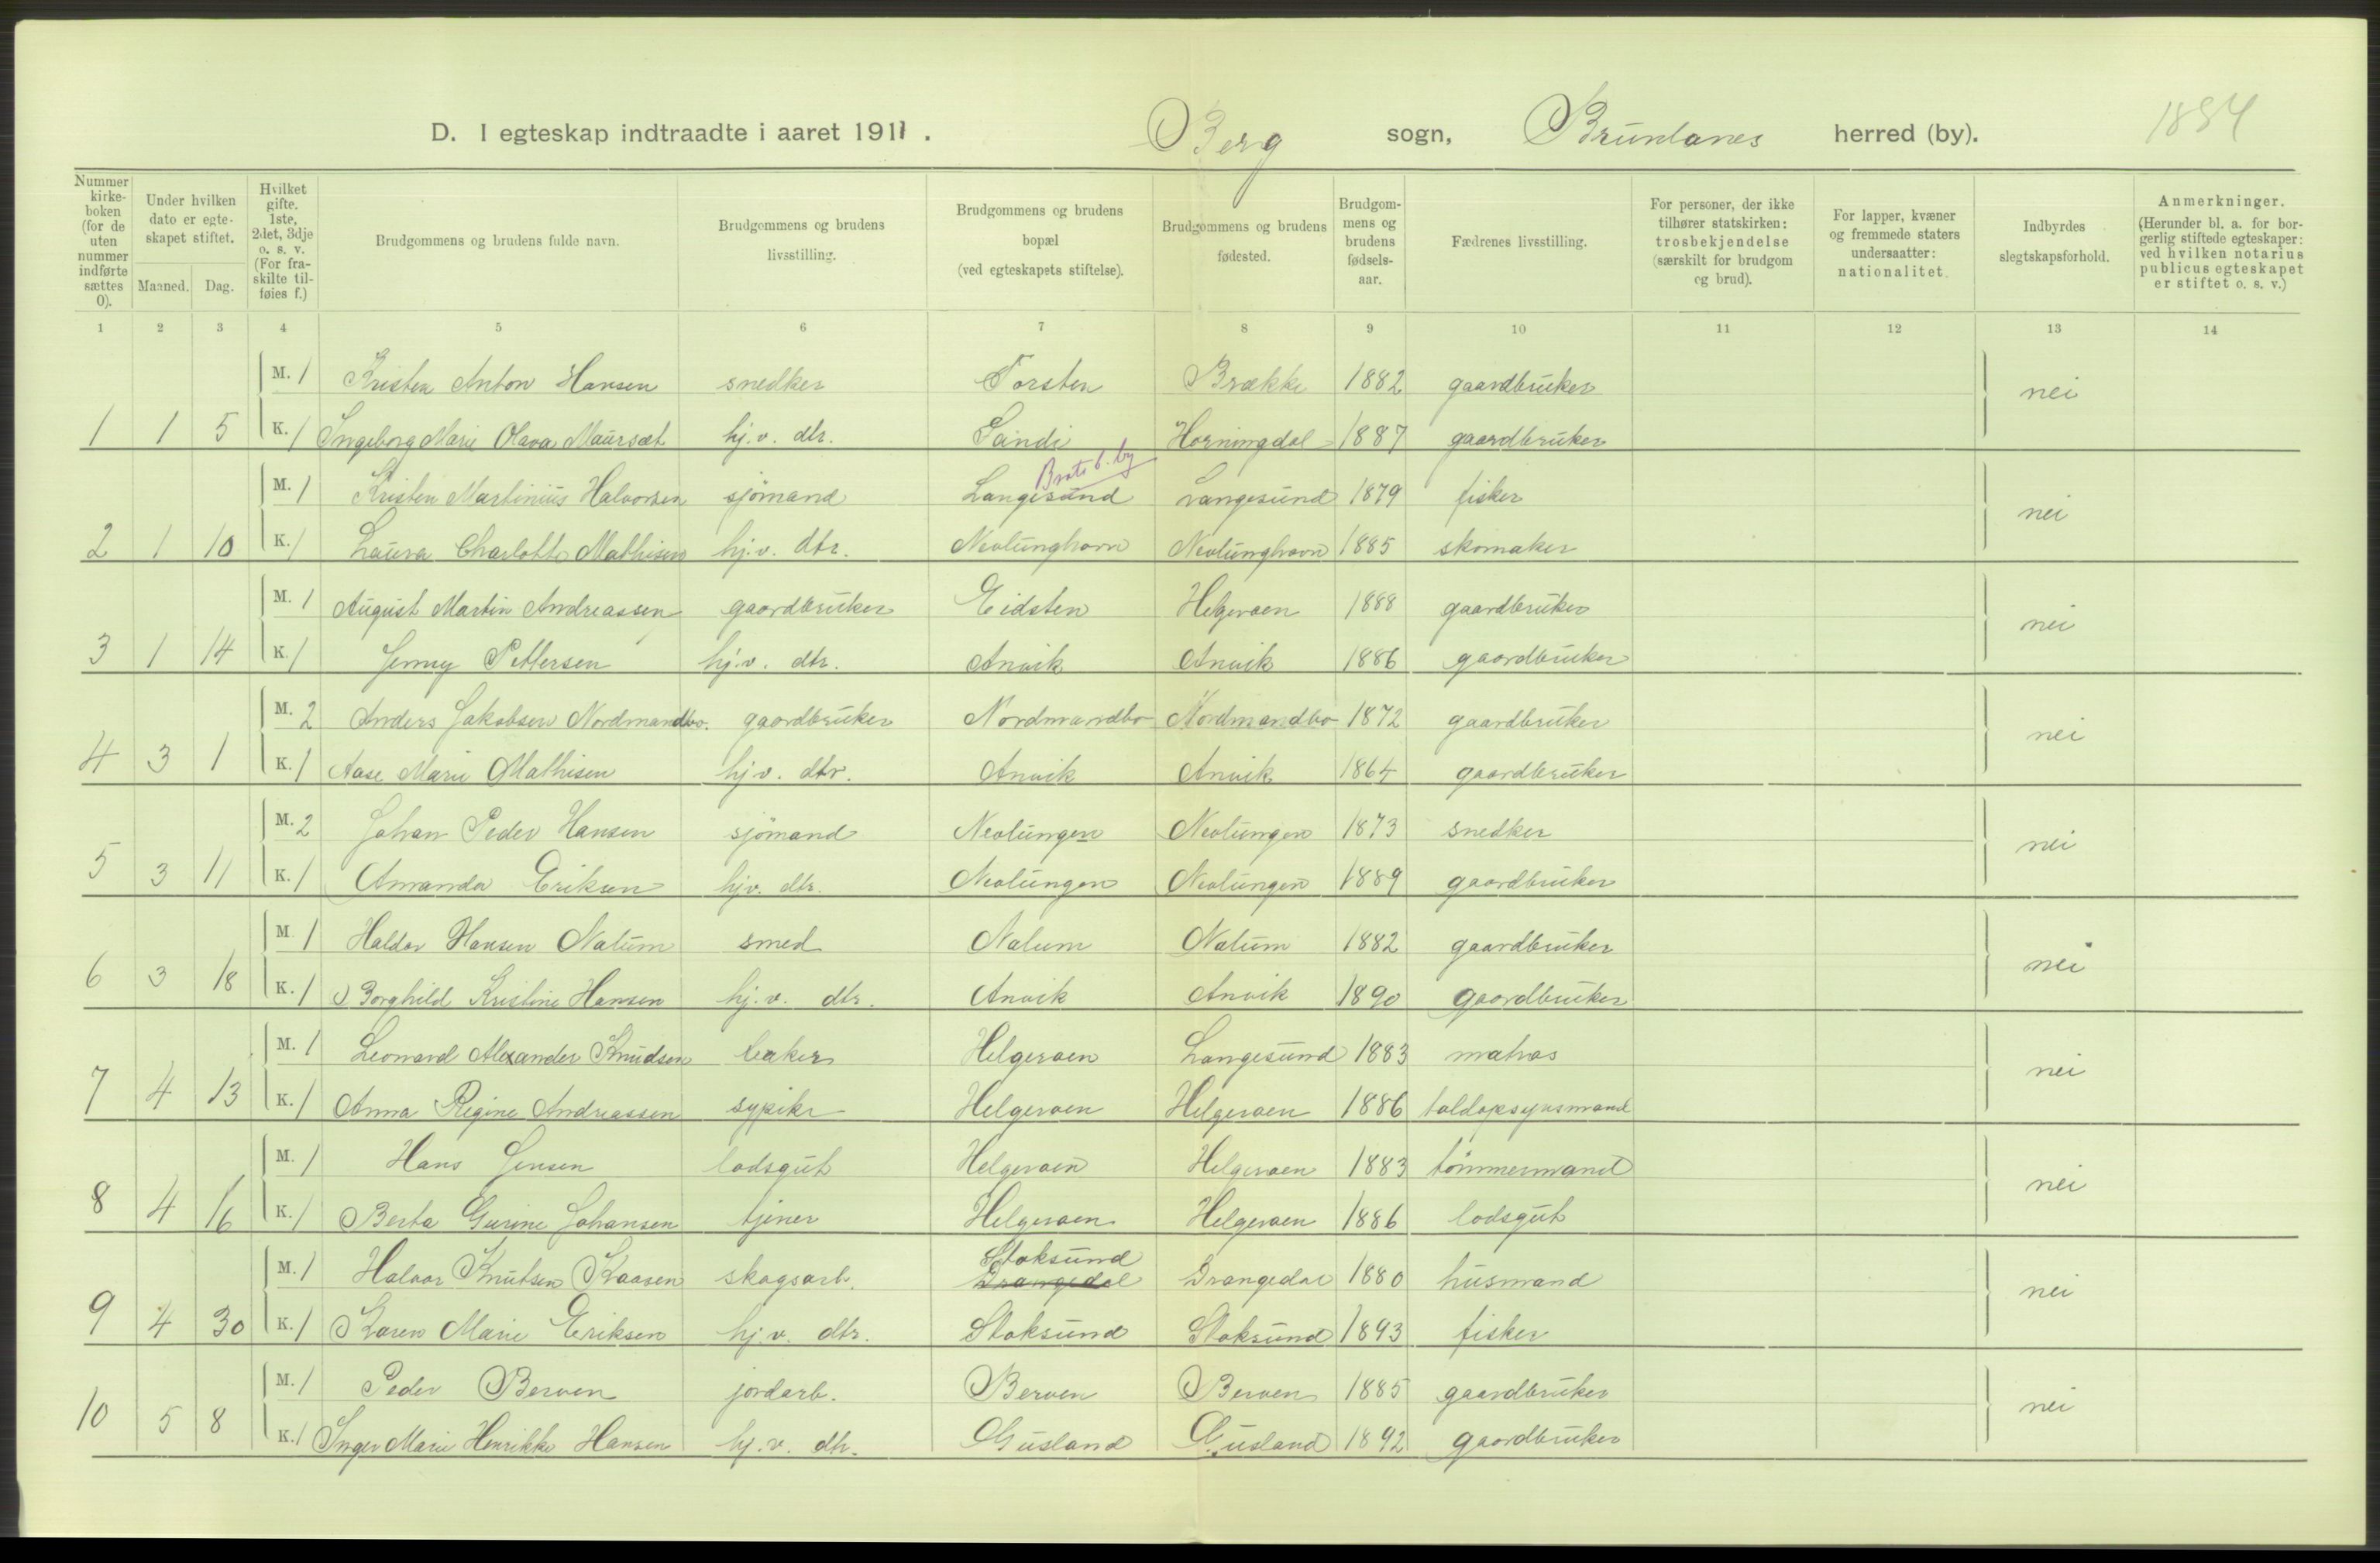 D. I egteskap indtraadte i aaret 1911. Berg sogn, Brunlanes herred (by). 1884
Nummer kirkeboken (for de uten nummer indførte sættes 0).
Under hvilken dato er egteskapet stiftet.
Maaned. Dag.
Hvilket gifte. 1ste, 2det, 3dje o. s. v. (For fraskilte tilføies f.)
Brudgommens og brudens fulde navn.
Brudgommens og brudens livsstilling.
Brudgommens og brudens bopæl (ved egteskapets stiftelse).
Brudgommens og brudens fødested.
Brudgommens og brudens fødselsaar.
Fædrenes livsstilling.
For personer, der ikke tilhører statskirken: trosbekjendelse (særskilt for brudgom og brud).
For lapper, kvæner og fremmede staters undersaatter: nationalitet.
Indbyrdes slegtskapsforhold.
Anmerkninger. (Herunder bl. a. for borgerlig stiftede egteskaper: ved hvilken notarius publicus egteskapet er stiftet o. s. v.)
1 2 3 4 5 6 7 8 9 10 11 12 13 14
M. 1 Kristen Anton Hansen snedker Torsten Brække 1882 gaardbruker nei
1 1 5 K. 1 Ingeborg Marie Olava Maursæt hj.v. dtr. Sandi Horningdal 1887 gaardbruker
Brats b. by
M. 1 Kristen Martinius Halvorsen sjømand Langesund Langesund 1879 fisker nei
2 1 10 K. 1 Laura Charlotte Mathisen hj.v. dtr. Nevlunghavn Nevlunghavn 1885 skomaker
M. 1 August Martin Andreassen gaardbruker Eidsten Helgeroen 1888 gaardbruker nei
3 1 14 K. 1 Jenny Pettersen hj.v. dtr. Anvik Anvik 1886 gaardbruker
M. 2 Anders Jakobsen Nordmandbo. gaardbruker Nordmandbo Nordmandbo 1872 gaardbruker nei
4 3 1 K. 1 Aase Marie Mathisen hj.v. dtr. Anvik Anvik 1864 gaardbruker
M. 2 Johan Peder Hansen sjømand Nevlungen Nevlungen 1873 snedker nei
5 3 11 K. 1 Amanda Eriksen hjv. dtr. Nevlungen Nevlungen 1889 gaardbruker
M 1 Haldor Hansen Nalum smed Nalum Nalum 1882 gaardbruker nei
6 3 18 K. 1 Borghild Kristine Hansen hj.v. dtr. Anvik Anvik 1890 gaardbruker
M. 1 Leonard Alexander Knudsen baker Helgeroen Langesund 1883 matros nei
7 4 13 K. 1 Anna Regine Andreassen sypike Helgeroen Helgeroen 1886 toldopsynsmand
M. 1 Hans Jensen lodsgut Helgeroen Helgeroen 1883 tømmermand nei
8 4 16 K. 1 Berta Gurine Johansen tjener Helgeroen Helgeroen 1886 lodsgut
Stoksund
M. 1 Halvor Knutsen Kaasen skogsarb. Drangedal Drangedal 1880 husmand nei
9 4 30 K. 1 Karen Marie Eriksen hj.v. dtr. Stoksund Stoksund 1893 fisker
M. 1 Peder Berven jordarb. Berven Berven 1885 gaardbruker nei
10 5 8 K. 1 Inger Marie Henrikke Hansen hj.v. dtr. Gusland Gusland 1892 gaardbruker